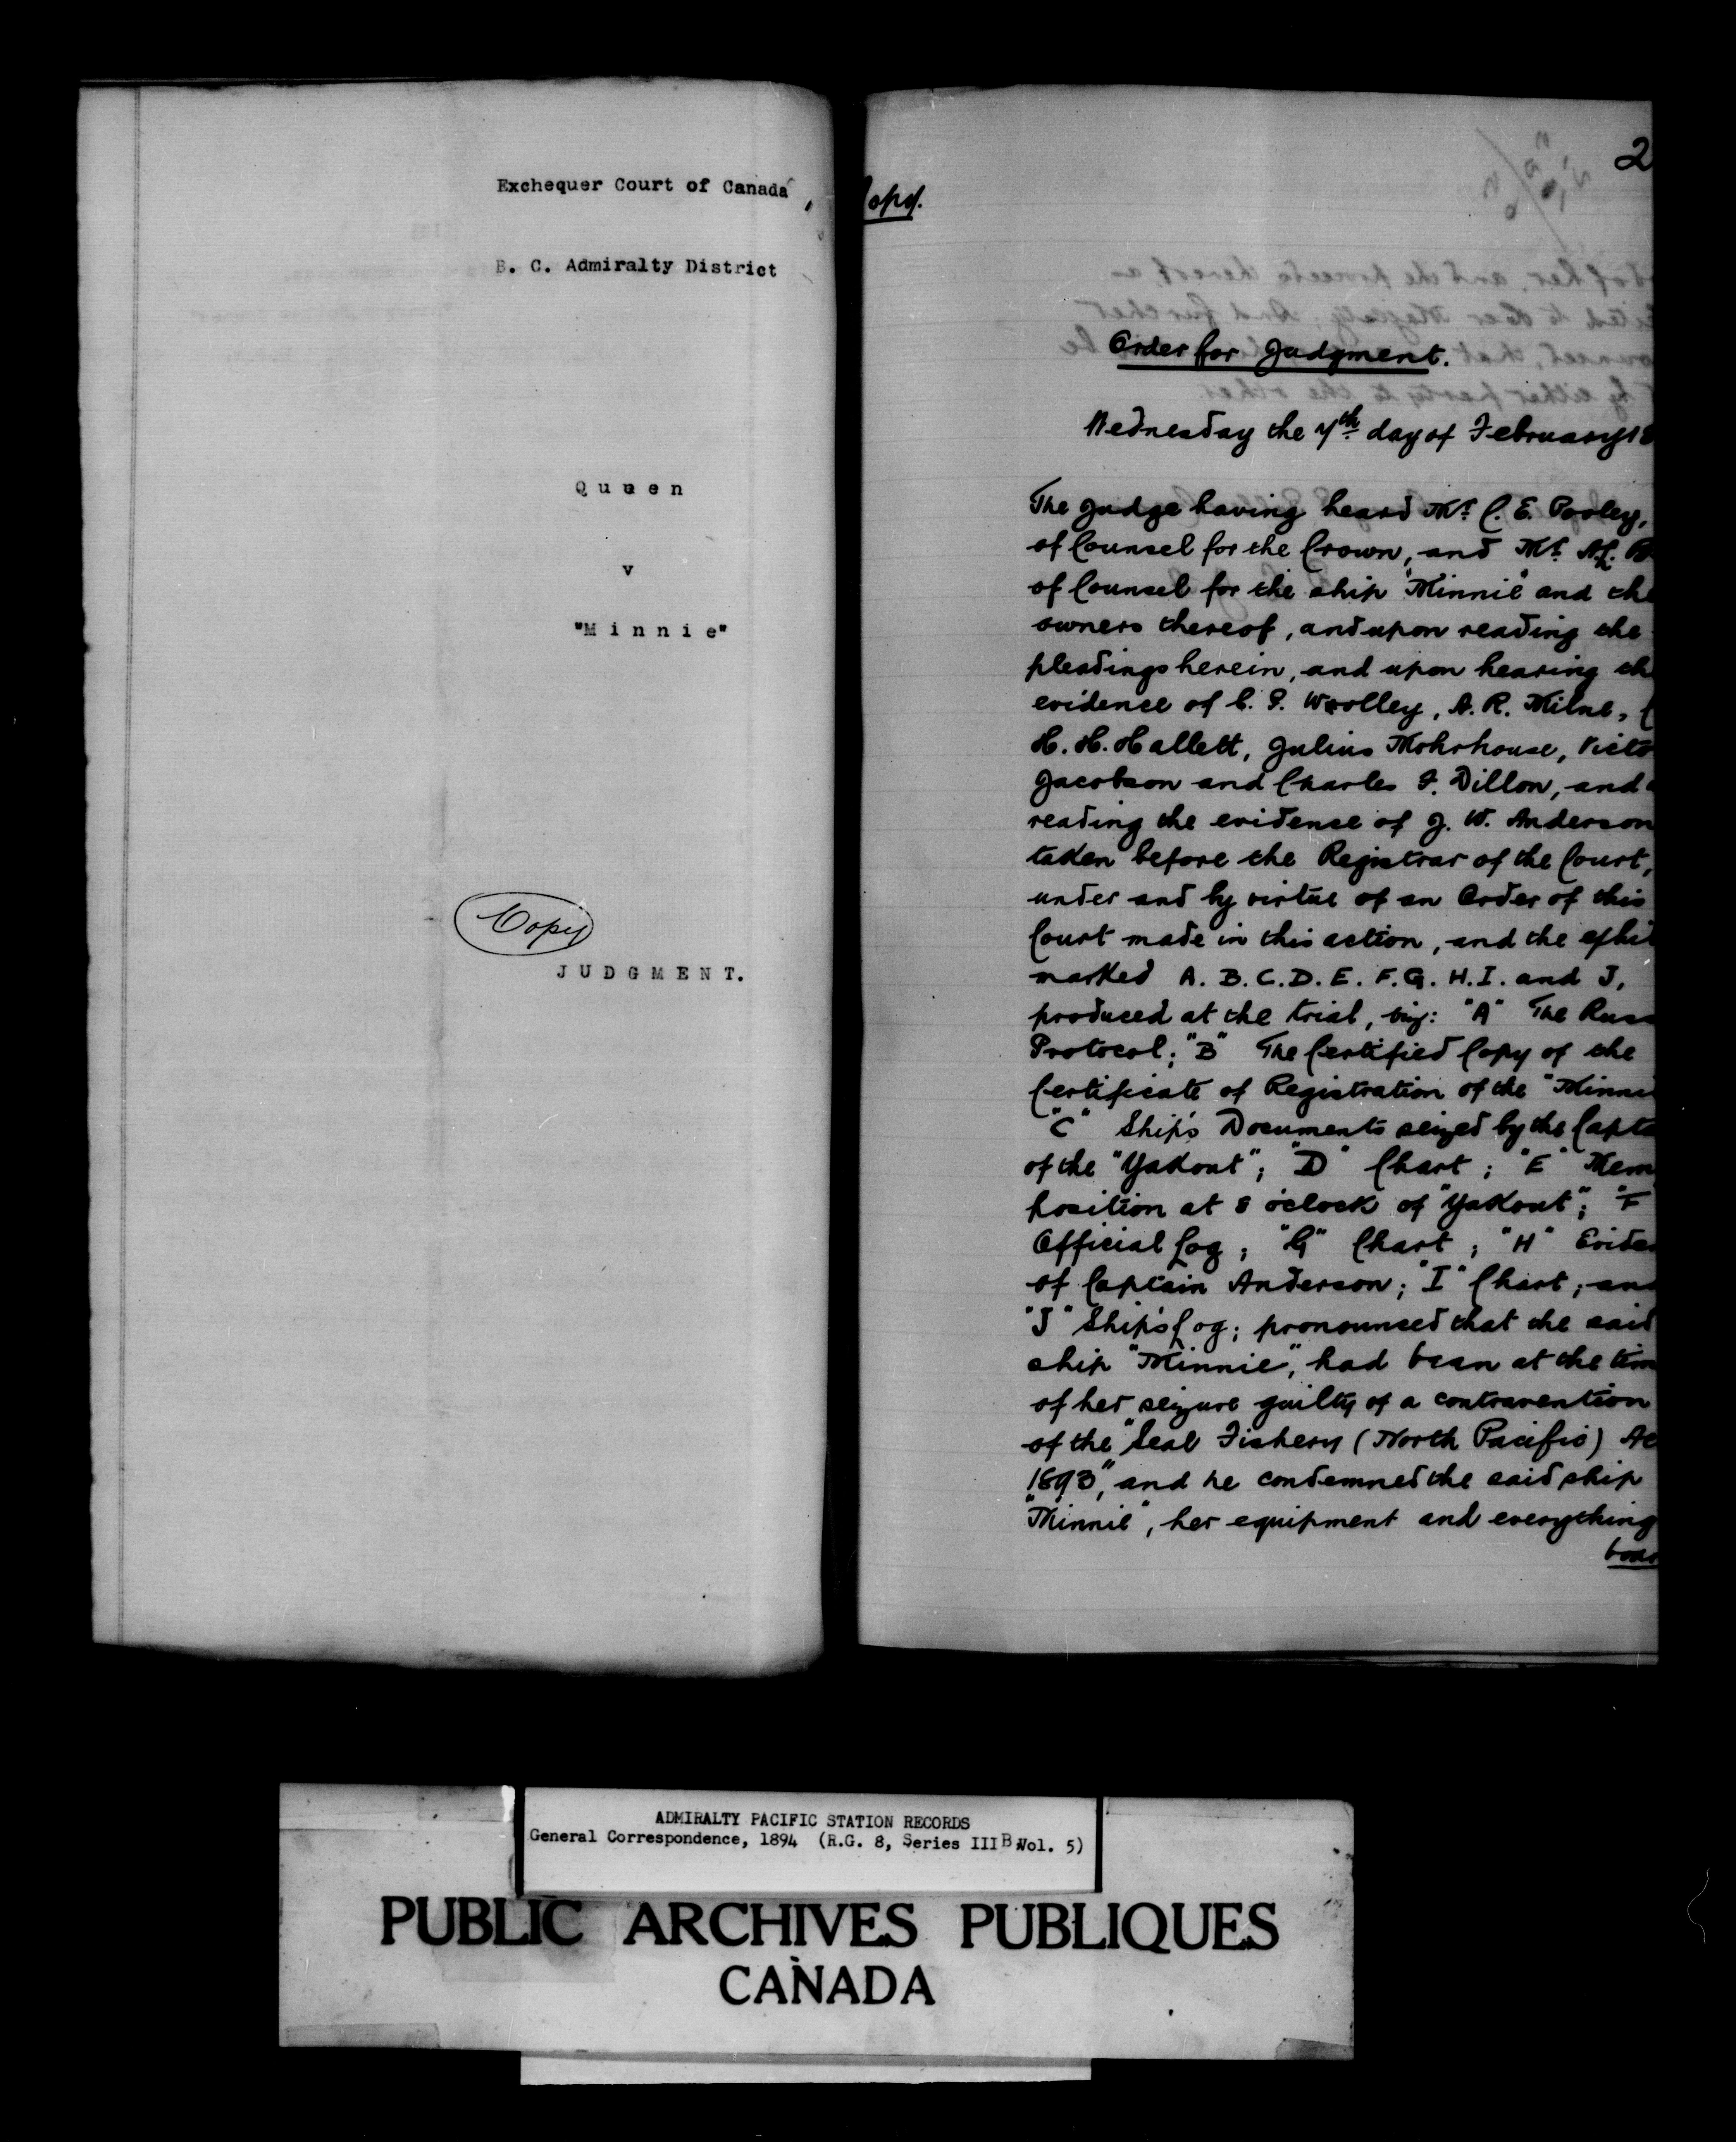 Exchequer Court of Canada,
B. C. Admiralty District
Queen
v
"Minnie"
Copy
JUDGMENT.
2
Copy.
Order for Judgment.
Wednesday the 7th day of February 18
The Judge having heard Mr. C. E. Pooley,
of Counsel for the Crown, and Mr. A.L. B
of Counsel for the ship "Minnie" and the
owners thereof, and upon reading the
pleadings herein, and upon hearing th
evidence of C. P. Woolley, A. R. Milne,
H. H. Hallett, Julius Mohrhouse, Victo
Jacobson and Charles F. Dillon, and
reading the evidence of J. W. Anderson
taken before the Registrar of the Court,
under and by virtue of an Order of this
Court made in this action, and the exhi
marked A. B. C. D. E. F. G. H. I. and J,
produced at the trial, viz: "A" The Russ
Protocol; "B" The Certified Copy of the
Certificate of Registration of the "Minni
"C" Ship's Documents seized by the Capta
of the "Yakout"; "D" Chart; "E" Mem
position at 8 o'clock of "Yakout"; "F"
Official Log; "G" Chart; "H" Eviden
of Captain Anderson; "I" Chart; and
"J" Ship's Log; pronounced that the said
ship "Minnie", had been at the tim
of her seizure guilty of a contravention
of the "Seal Fishery (North Pacific) Ac
1893", and he condemned the said ship
"Minnie", her equipment and everything
boar
ADMIRALTY PACIFIC STATION RECORDS
General Correspondence, 1894 (R.G. 8, Series III B Vol. 5)
PUBLIC ARCHIVES PUBLIQUES
CANADA